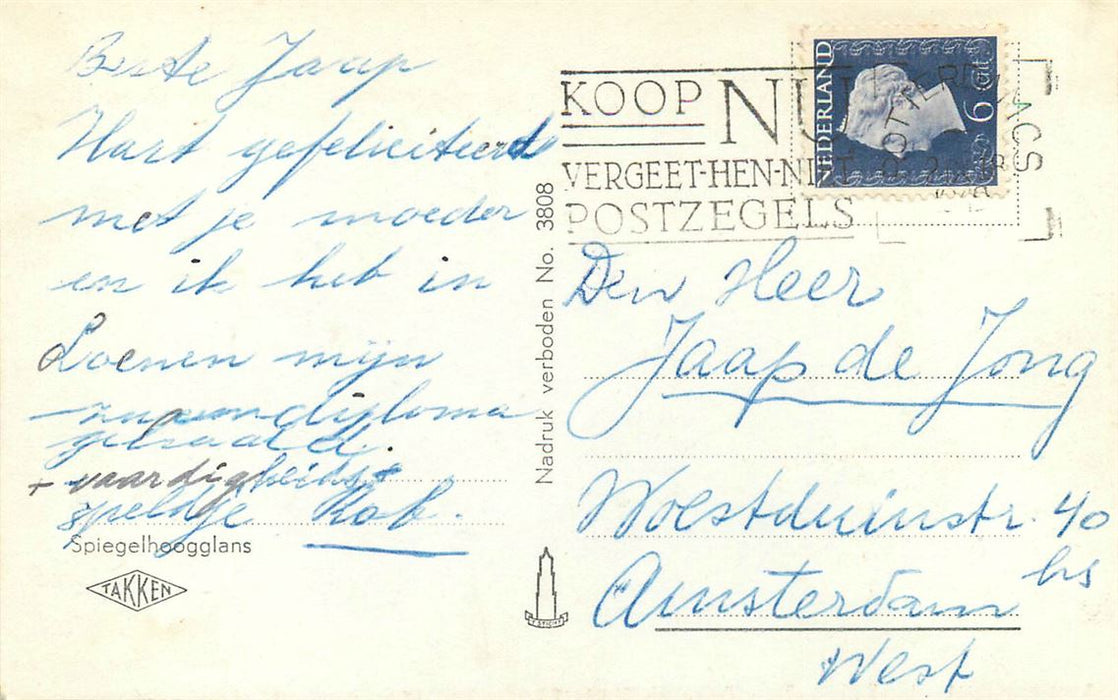 Beste Jaap
Hart gefeliciteerd
met je moeder
en ik heb in
Loenen mijn
zwemdiploma
gehaald.
+ vaardigheids
speldje Rob.
Spiegelhoogglans
TAKKEN
Nadruk verboden No. 3808
KOOP NU
VERGEET-HEN-NIET
POSTZEGELS
NEDERLAND
6 cnt
Den Heer
Jaap de Jong
Woestduinstr. 40
hs
Amsterdam
West